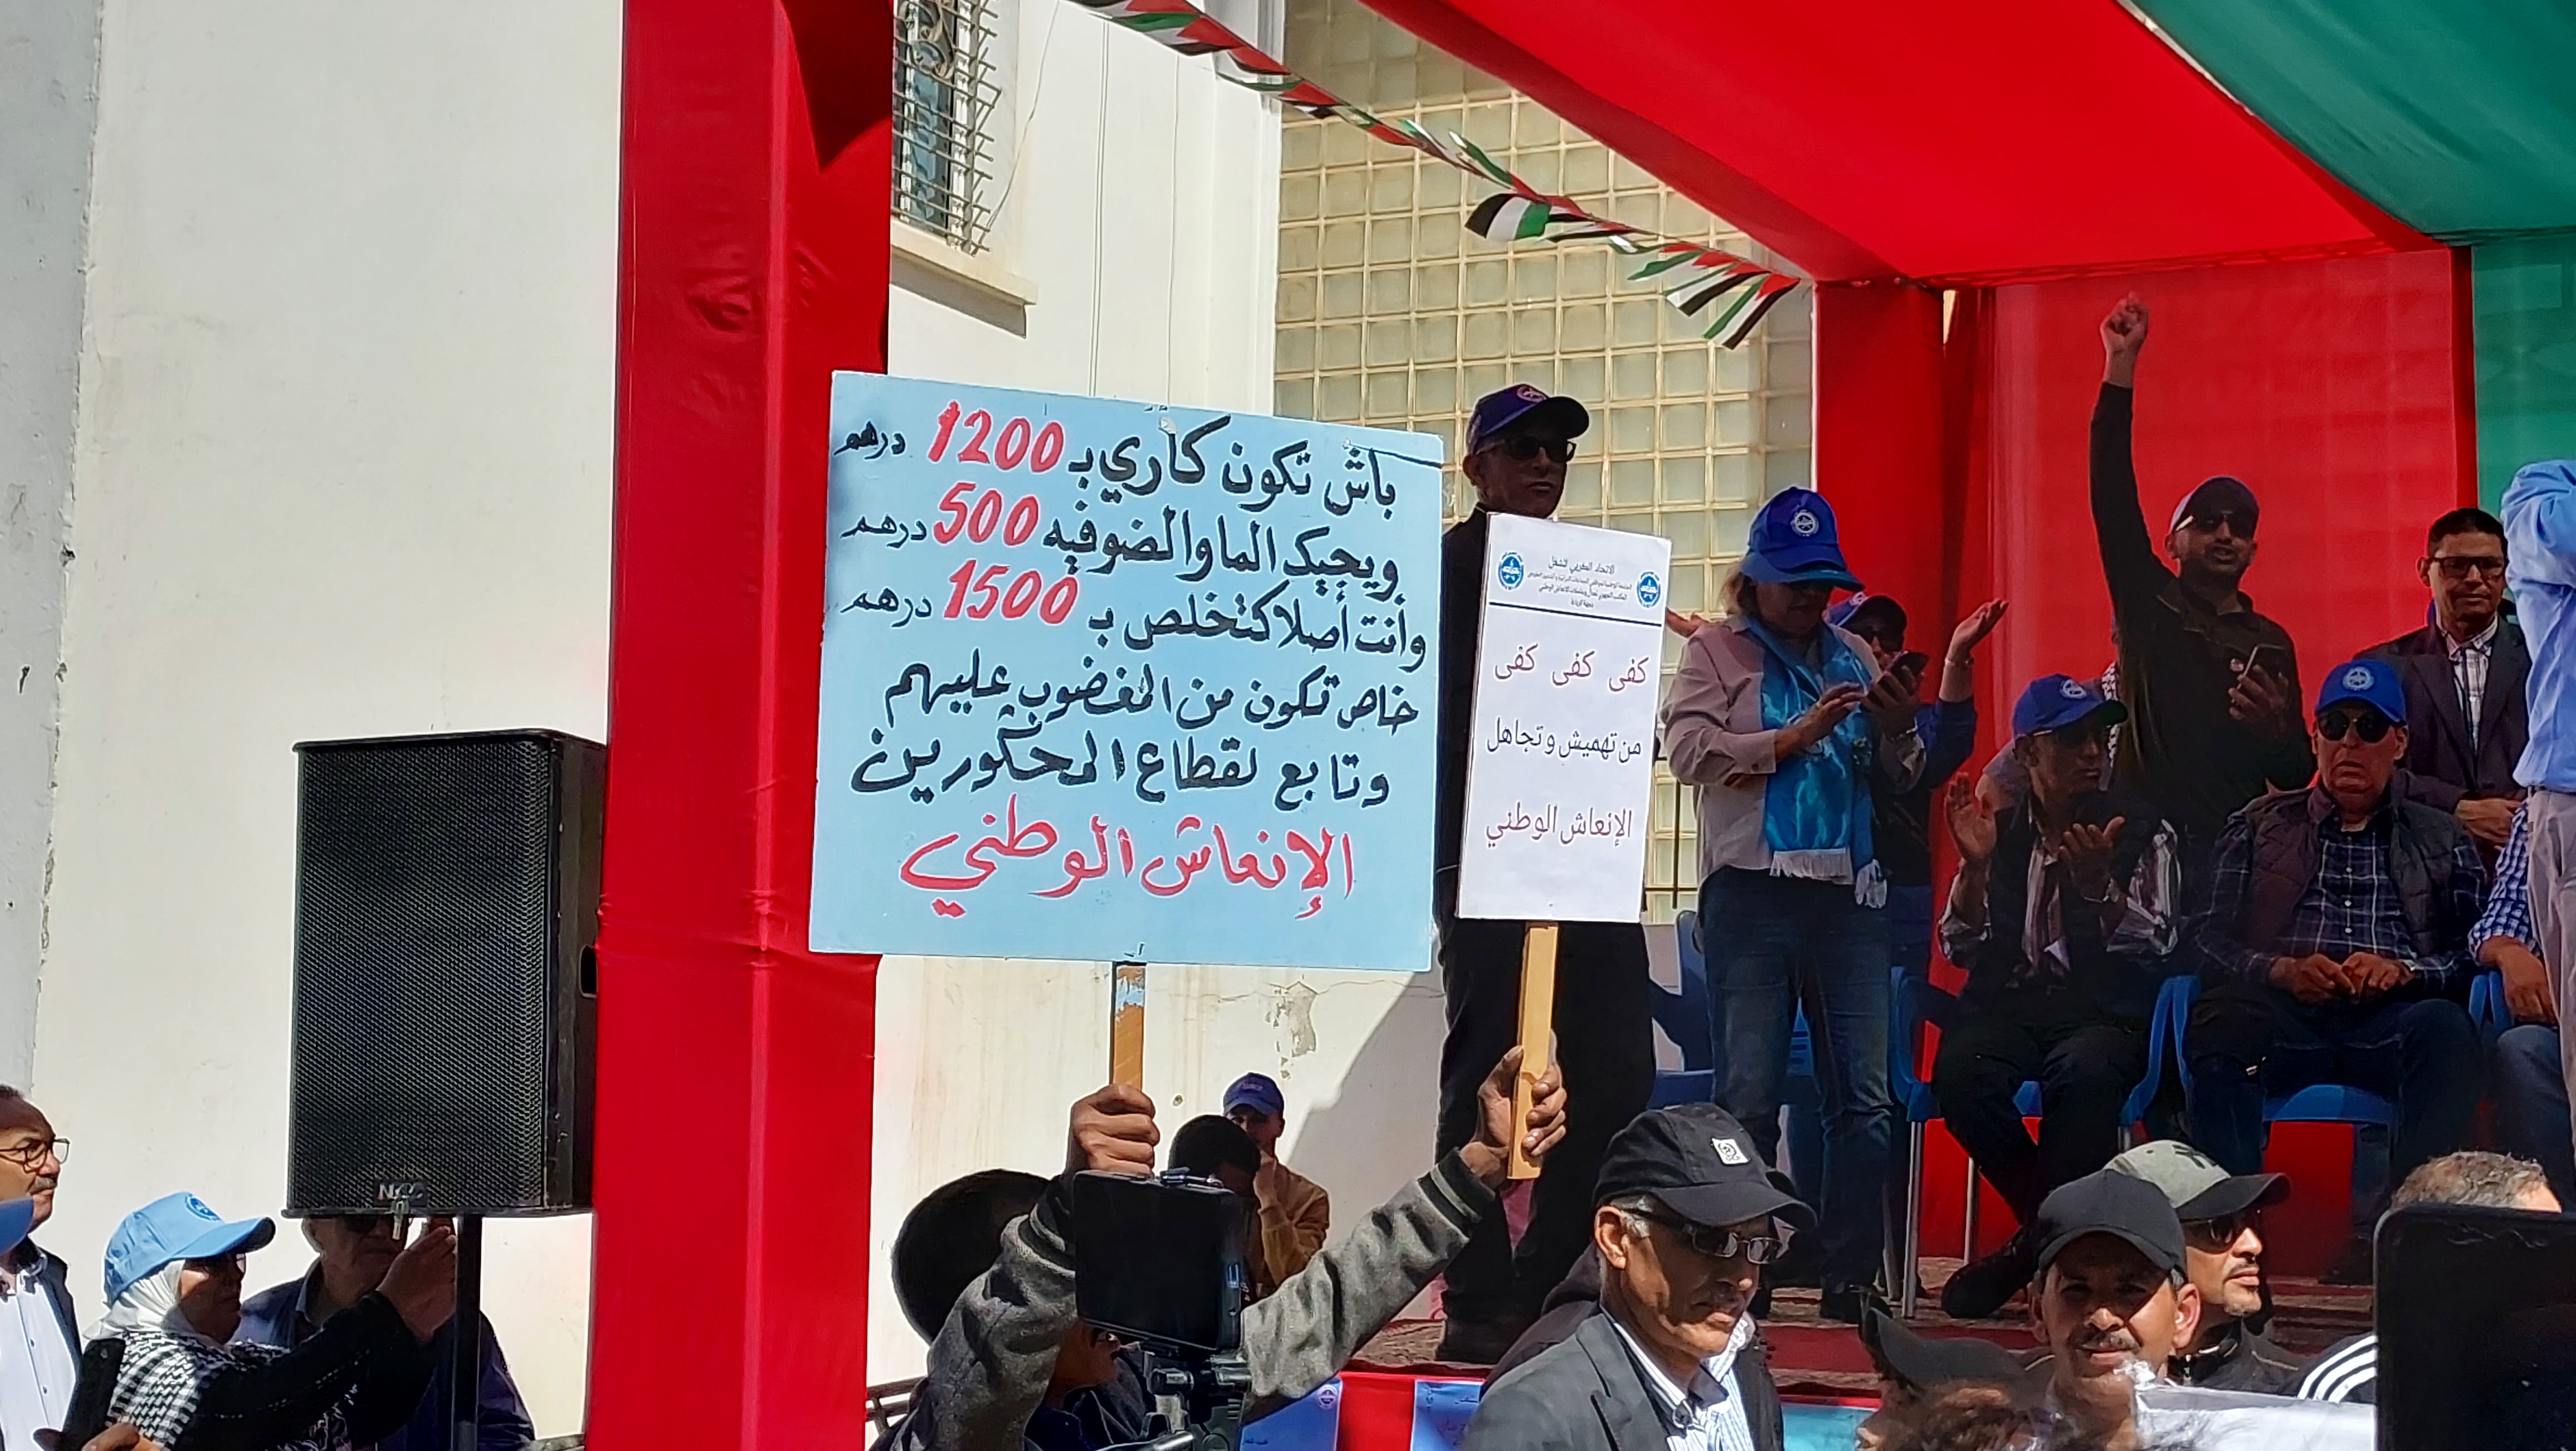 باش تكون كاري بـ 1200 درهم
ويجيك الما والضو فيه 500 درهم
وأنت أصلا كتخلص بـ 1500 درهم
خاص تكون من المغضوب عليهم
وتابع لقطاع المحكورين
الإنعاش الوطني
الاتحاد المغربي للشغل
كفى كفى كفى
من تهميش وتجاهل
الإنعاش الوطني